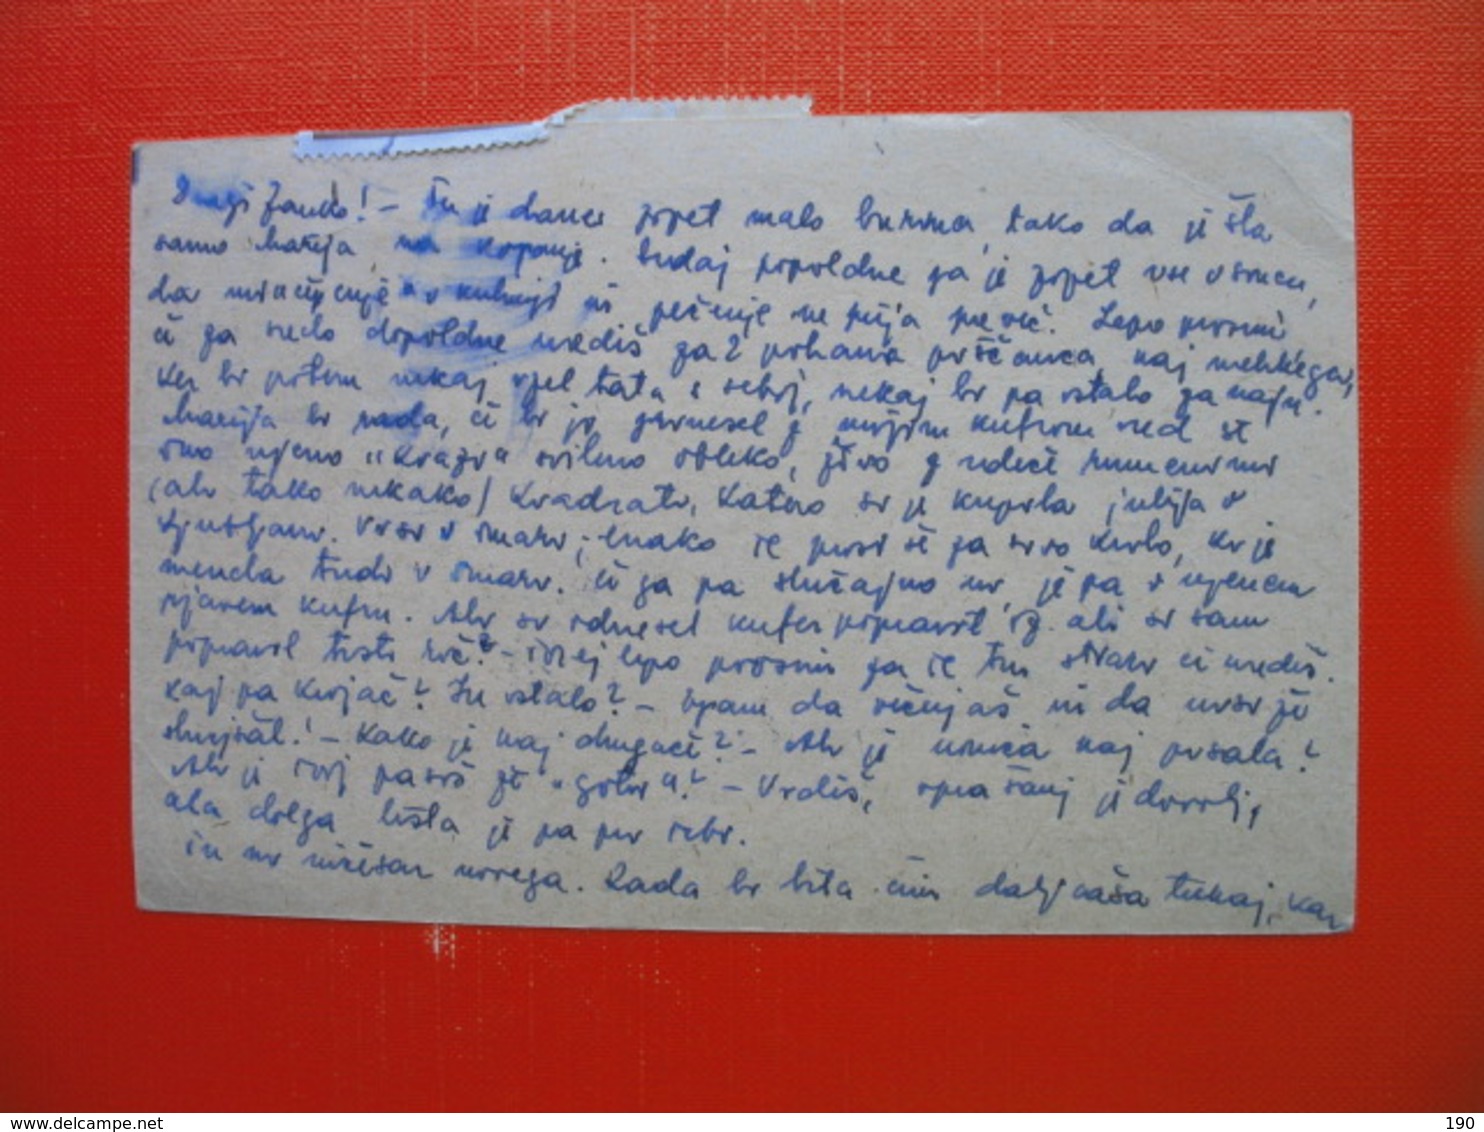 Dragi Janko! – Tu je danes zopet malo burna, tako da je šla
samo Marija na kopanje. Sedaj popoldne pa je zopet vse v soncu,
da v kuhinji pečenje ne prija preveč. Lepo prosim
če za sredo dopoldne urediš za 2 pohana piščanca, naj mehkega,
ker bi potem nekaj vzel tata s seboj, nekaj bi pa ostalo za naju.
Marija bi rada, če bi jo prinesel z mojim kufrom red še
ono njeno svilno obleko, živo z rdeče rumenimi
(ali tako nekako) kvadrati, katero si je kupila julija v
Ljubljani. Visi v omari; enako te prosi še za sivo kiklo, ki je
menda tudi v omari. Če ga pa slučajno ni, je pa v njenem
rjavem kufru. Ali si odnesel kufer popravit oz. ali si sam
popravil tisti roč? – Torej lepo prosim za te tri stvari če urediš.
Kaj pa krojač? Je ostalo? – Upam da ne da nisi že
slišal! – Kako je kaj drugače? – Ali je kaj pisala?
Ali je tvoj pasoš že "gotov"? – Vidiš, vprašanj je dovolj,
ala dolga lista je pa pri tebi.
Tu ni ničesar novega. Rada bi bila čim dalj časa tukaj, kar
delcampe.net
190